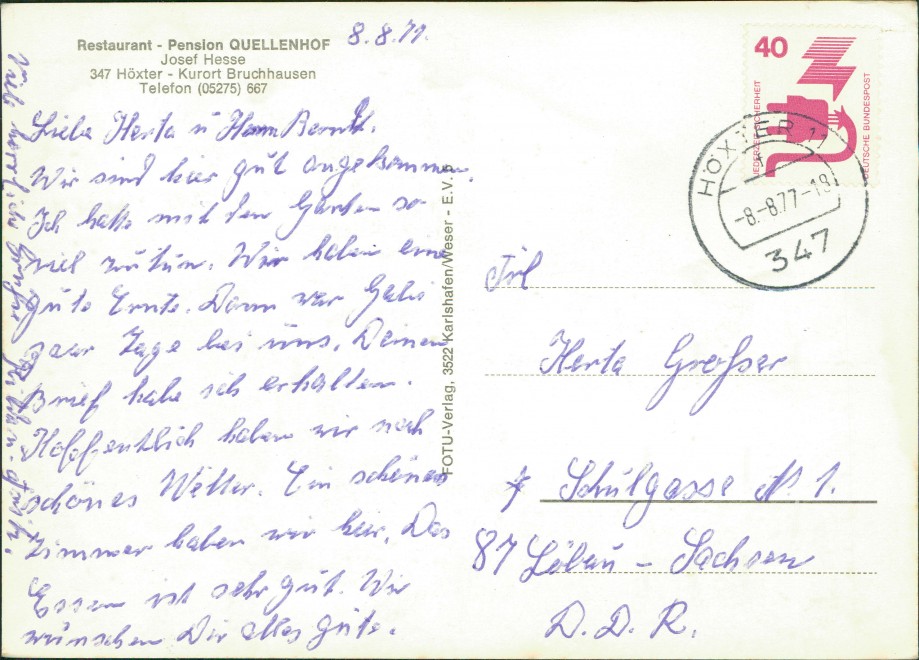 Restaurant - Pension QUELLENHOF
Josef Hesse
347 Höxter - Kurort Bruchhausen
Telefon (05275) 667
8.8.77.
Liebe Herta u
Wir sind hier gut angekommen.
Ich hatte mit den Garten so
viel zutun. Wir haben eine
gute Ernte. Dann war Gabi
paar Tage bei uns. Deinen
Brief habe ich erhalten.
Hoffentlich haben wir noch
schönes Wetter. Ein schönes
Zimmer haben wir hier. Das
Essen ist sehr gut. Wir
wünschen Dir alles gute.
Viele herzliche Grüße
FOTU-Verlag, 3522 Karlshafen/Weser - E.V.
40
JEDERZEIT SICHERHEIT
DEUTSCHE BUNDESPOST
HÖXTER 11
-8.-8.77-18
347
Frl
Herta Großer
Schulgasse N 1.
87 Löbau - Sachsen
D. D. R.